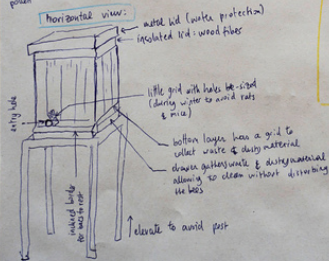 horizontal view:
metal lid (water protection)
insolated lid: wood fibes
little grid with holes bee-sized
(during winter to avoid rats
& mice)
entry hole
bottom layer has a grid to
collect waste & dusty material
drawer gathers waste & dusty material
allowing to clean without disturbing
the bees
for bees to rest
elevate to avoid pest